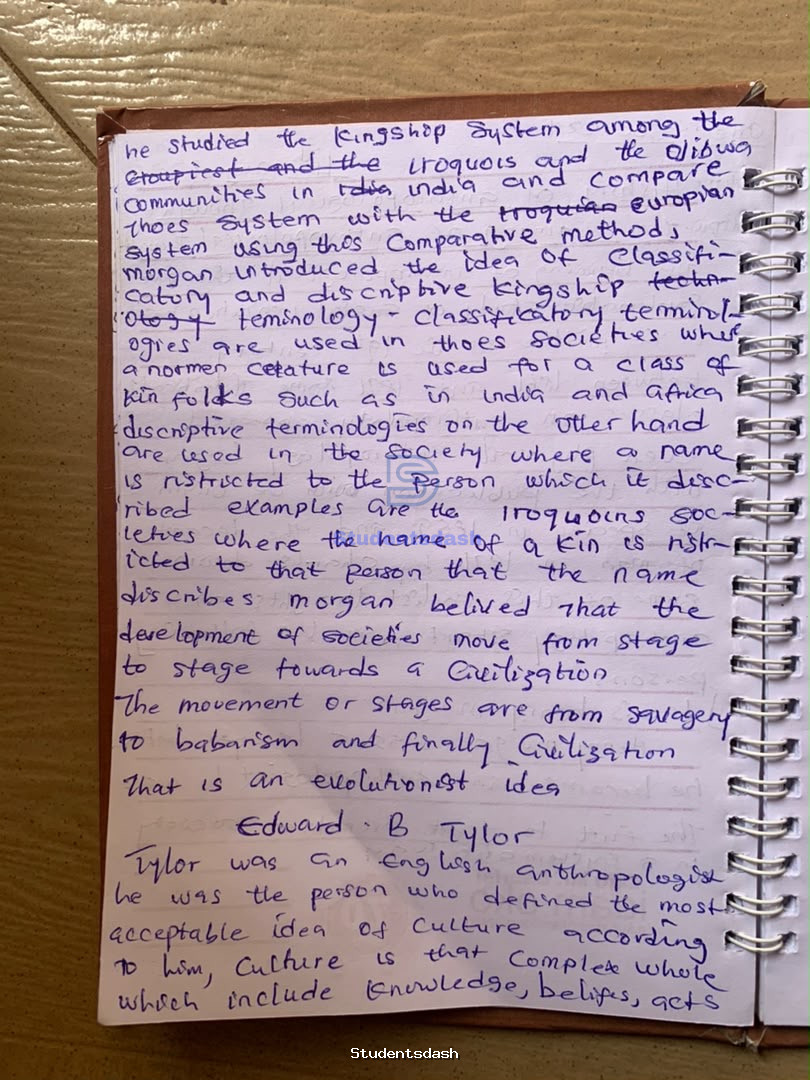 he studied the kingship system among the
croupiest and the iroquois and the Olibwa
communities in idia india and compare
thoes system with the troquian europian
system using thos Comparative methods
morgan introduced the idea of Classifi-
catory and discriptive kingship techn-
ology teminology - classificatory terminol-
ogies are used in thoes societies whre
a normen cetature is used for a class of
kin folds such as in india and africa
discriptive terminologies on the other hand
are used in the society where a name
is ristructed to the person which it disc-
ribed examples are the iroquoins soc-
ieties where the name of a kin is ristr-
icted to that person that the name
discribes morgan belived that the
development of societies move from stage
to stage towards a Civilization
The movement or stages are from savagery
to babarism and finally Civilization
That is an evolutionist idea
Edward . B Tylor
Tylor was an english anthropologist
he was the person who defined the most
acceptable idea of Culture according
To him, Culture is that Complex whole
which include knowledge, belifes, acts
Studentsdash
Studentsdash